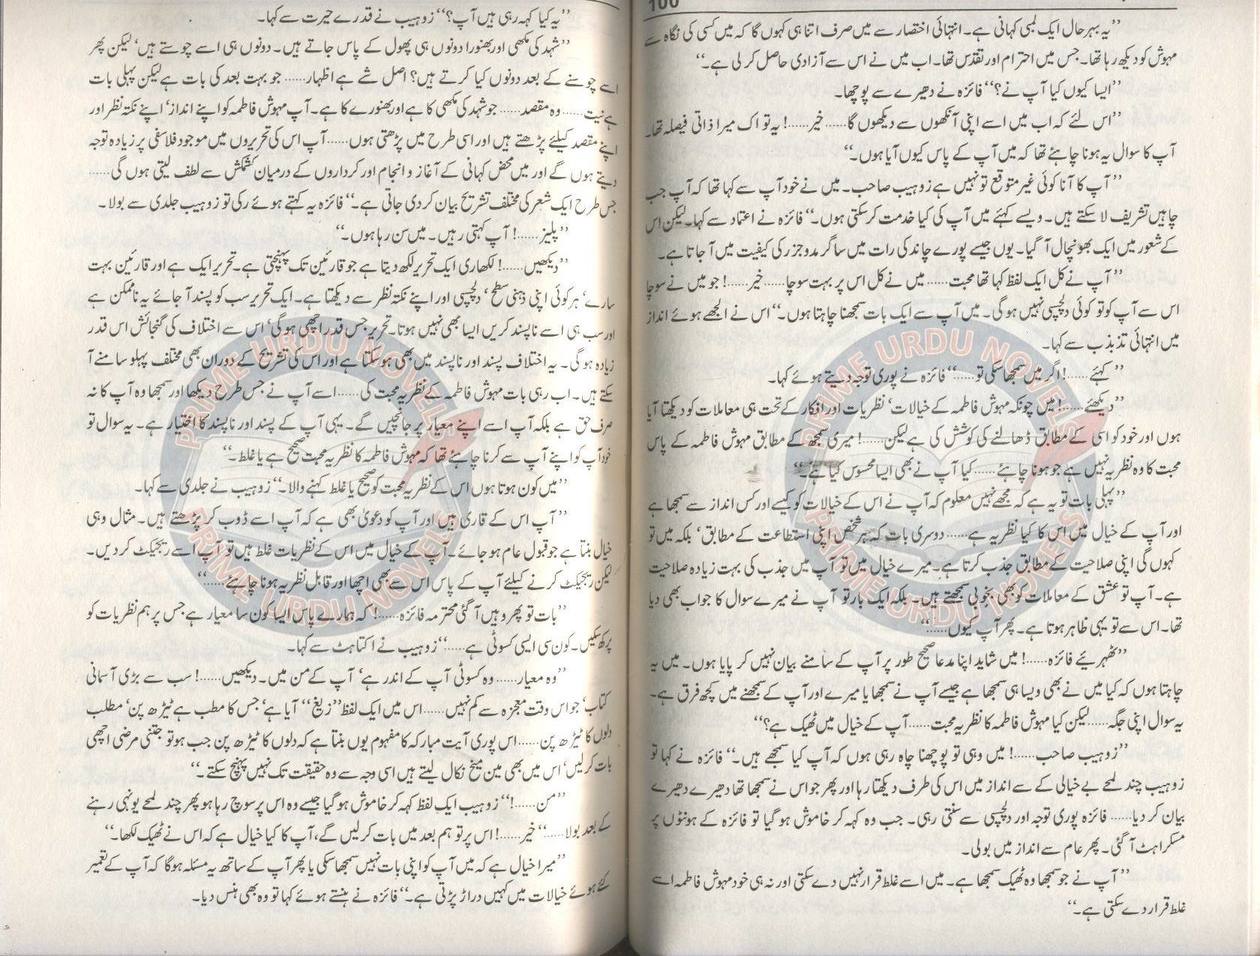 100
"یہ بہرحال ایک لمبی کہانی ہے۔ انتہائی اختصار سے میں صرف اتنا ہی کہوں گا کہ میں کسی کی نگاہ سے
مہوش کو دیکھ رہا تھا۔ جس میں احترام اور تقدس تھا۔ اب میں نے اس سے آزادی حاصل کر لی ہے۔"
"ایسا کیوں کیا آپ نے؟" فائزہ نے دھیرے سے پوچھا۔
"اس لئے کہ اب میں اسے اپنی آنکھوں سے دیکھوں گا...... خیر......! یہ تو اک میرا ذاتی فیصلہ تھا۔
آپ کا سوال یہ ہونا چاہئے تھا کہ میں آپ کے پاس کیوں آیا ہوں۔"
"آپ کا آنا کوئی غیر متوقع تو نہیں ہے زوہیب صاحب۔ میں نے خود آپ سے کہا تھا کہ آپ جب
چاہیں تشریف لا سکتے ہیں۔ ویسے کہئے میں آپ کی کیا خدمت کر سکتی ہوں۔" فائزہ نے اعتماد سے کہا۔ لیکن اس
کے شعور میں ایک بھونچال آ گیا۔ یوں جیسے پورے چاند کی رات میں ساگر مدوجزر کی کیفیت میں آ جاتا ہے۔
"آپ نے کل ایک لفظ کہا تھا محبت...... میں نے کل اس پر بہت سوچا...... خیر......! جو میں نے سوچا
اس سے آپ کو تو کوئی دلچسپی نہیں ہوگی۔ میں آپ سے ایک بات سمجھنا چاہتا ہوں۔" اس نے الجھے ہوئے انداز
میں انتہائی تذبذب سے کہا۔
"کہئے......! اگر میں سمجھا سکی تو......" فائزہ نے پوری توجہ دیتے ہوئے کہا۔
"دیکھئے......! میں چونکہ مہوش فاطمہ کے خیالات' نظریات اور افکار کے تحت ہی معاملات کو دیکھتا آیا
ہوں اور خود کو اسی کے مطابق ڈھالنے کی کوشش کی ہے لیکن......! میری سمجھ کے مطابق مہوش فاطمہ کے پاس
محبت کا وہ نظریہ نہیں ہے جو ہونا چاہئے...... کیا آپ نے بھی ایسا محسوس کیا ہے؟"
"پہلی بات تو یہ ہے کہ مجھے نہیں معلوم کہ آپ نے اس کے خیالات کو کیسے اور کس انداز سے سمجھا ہے
اور آپ کے خیال میں اس کا کیا نظریہ ہے...... دوسری بات کہ ہر شخص اپنی استطاعت کے مطابق' بلکہ میں تو
کہوں گی اپنی صلاحیت کے مطابق جذب کرتا ہے۔ میرے خیال میں تو آپ میں جذب کی بہت زیادہ صلاحیت
ہے۔ آپ تو عشق کے معاملات کو بھی بخوبی سمجھتے ہیں۔ بلکہ ایک بار تو آپ نے میرے سوال کا جواب بھی دیا
تھا۔ اس سے تو یہی ظاہر ہوتا ہے۔ پھر آپ کیوں......"
"ٹھہرئیے فائزہ......! میں شاید اپنا مدعا صحیح طور پر آپ کے سامنے بیان نہیں کر پایا ہوں۔ میں یہ
چاہتا ہوں کہ کیا میں نے بھی ویسا ہی سمجھا ہے جیسے آپ نے سمجھا یا میرے اور آپ کے سمجھنے میں کچھ فرق ہے۔
یہ سوال اپنی جگہ...... لیکن کیا مہوش فاطمہ کا نظریہ محبت...... آپ کے خیال میں ٹھیک ہے؟"
"زوہیب صاحب......! میں وہی تو پوچھنا چاہ رہی ہوں کہ آپ کیا سمجھے ہیں۔" فائزہ نے کہا تو
زوہیب چند لمحے بے خیالی کے سے انداز میں اس کی طرف دیکھتا رہا اور پھر جو اس نے سمجھا تھا دھیرے دھیرے
بیان کر دیا...... فائزہ پوری توجہ اور دلچسپی سے سنتی رہی۔ جب وہ کہہ کر خاموش ہو گیا تو فائزہ کے ہونٹوں پر
مسکراہٹ آ گئی۔ پھر عام سے انداز میں بولی۔
"آپ نے جو سمجھا وہ ٹھیک سمجھا ہے۔ میں اسے غلط قرار نہیں دے سکتی اور نہ ہی خود مہوش فاطمہ اسے
غلط قرار دے سکتی ہے۔"
"یہ کیا کہہ رہی ہیں آپ؟" زوہیب نے قدرے حیرت سے کہا۔
"شہد کی مکھی اور بھنورا دونوں ہی پھول کے پاس جاتے ہیں۔ دونوں ہی اسے چوستے ہیں' لیکن پھر
اسے چوسنے کے بعد دونوں کیا کرتے ہیں؟ اصل شے ہے اظہار...... جو بہت بعد کی بات ہے لیکن پہلی بات
ہے نیت...... وہ مقصد...... جو شہد کی مکھی کا ہے اور بھنورے کا ہے۔ آپ مہوش فاطمہ کو اپنے انداز' اپنے نکتہ نظر اور
اپنے مقصد کیلئے پڑھتے ہیں اور اسی طرح میں پڑھتی ہوں...... آپ اس کی تحریروں میں موجود فلاسفی پر زیادہ توجہ
دیتے ہوں گے اور میں محض کہانی کے آغاز و انجام اور کرداروں کے درمیان کشمکش سے لطف لیتی ہوں گی......
جس طرح ایک شعر کی مختلف تشریح بیان کر دی جاتی ہے۔" فائزہ یہ کہتے ہوئے رکی تو زوہیب جلدی سے بولا۔
"پلیز......! آپ کہتی رہیں۔ میں سن رہا ہوں۔"
"دیکھیں......! لکھاری ایک تحریر لکھ دیتا ہے جو قارئین تک پہنچتی ہے۔ تحریر ایک ہے اور قارئین بہت
سارے' ہر کوئی اپنی ذہنی سطح' دلچسپی اور اپنے نکتہ نظر سے دیکھتا ہے۔ ایک تحریر سب کو پسند آ جائے یہ ناممکن ہے
اور سب ہی اسے ناپسند کریں ایسا بھی نہیں ہوتا۔ تحریر جس قدر اچھی ہوگی' اس سے اختلاف کی گنجائش اس قدر
زیادہ ہوگی۔ یہ اختلاف پسند اور ناپسند میں بھی ہو سکتا ہے اور اس کی تشریح کے دوران بھی مختلف پہلو سامنے آ
سکتے ہیں۔ اب رہی بات مہوش فاطمہ کے نظریہ محبت کی...... اسے آپ نے جس طرح دیکھا اور سمجھا وہ آپ کا نہ
صرف حق ہے بلکہ آپ اسے اپنے معیار پر جانچیں گے۔ یہی آپ کے پسند اور ناپسند کا اختیار ہے۔ یہ سوال تو
خود آپ کو اپنے آپ سے کرنا چاہئے تھا کہ مہوش فاطمہ کا نظریہ محبت صحیح ہے یا غلط۔"
"میں کون ہوتا ہوں اس کے نظریہ محبت کو صحیح یا غلط کہنے والا۔" زوہیب نے جلدی سے کہا۔
"آپ اس کے قاری ہیں اور آپ کو دعویٰ بھی ہے کہ آپ اسے ڈوب کر پڑھتے ہیں۔ مثال وہی
خیال بنتا ہے جو قبول عام ہو جائے۔ آپ کے خیال میں اس کے نظریات غلط ہیں تو آپ اسے ریجیکٹ کر دیں۔
لیکن ریجیکٹ کرنے کیلئے آپ کے پاس اس سے بھی اچھا اور قابل نظریہ ہونا چاہئے......"
"بات تو پھر وہیں آ گئی محترمہ فائزہ......! کہ ہمارے پاس ایسا کون سا معیار ہے جس پر ہم نظریات کو
پرکھ سکیں۔ کون سی ایسی کسوٹی ہے......" زوہیب نے اکتاہٹ سے کہا۔
"وہ معیار...... وہ کسوٹی آپ کے اندر ہے' آپ کے من میں۔ دیکھیں......! سب سے بڑی آسمانی
کتاب' جو اس وقت معجزہ سے کم نہیں...... اس میں ایک لفظ "زیغ" آیا ہے' جس کا مطلب ہے ٹیڑھ پن' مطلب
دلوں کا ٹیڑھ پن...... اس پوری آیت مبارکہ کا مفہوم یوں بنتا ہے کہ دلوں کا ٹیڑھ پن جب ہو تو' جتنی مرضی اچھی
بات کر لیں' اس میں بھی مین میخ نکال لیتے ہیں اسی وجہ سے وہ حقیقت تک نہیں پہنچ سکتے۔"
"من......!" زوہیب ایک لفظ کہہ کر خاموش ہو گیا جیسے وہ اس پر سوچ رہا ہو پھر چند لمحے یونہی رہنے
کے بعد بولا...... "خیر......! اس پر تو ہم بعد میں بات کر لیں گے، آپ کا کیا خیال ہے کہ اس نے ٹھیک لکھا۔"
"میرا خیال ہے کہ میں آپ کو اپنی بات نہیں سمجھا سکی یا پھر آپ کے ساتھ یہ مسئلہ ہوگا کہ آپ کے تعمیر
کئے ہوئے خیالات میں کہیں دراڑ پڑتی ہے۔" فائزہ نے ہنستے ہوئے کہا تو وہ بھی ہنس دیا۔
PRIME URDU NOVELS
PRIME URDU NOVELS
PRIME URDU NOVELS
PRIME URDU NOVELS